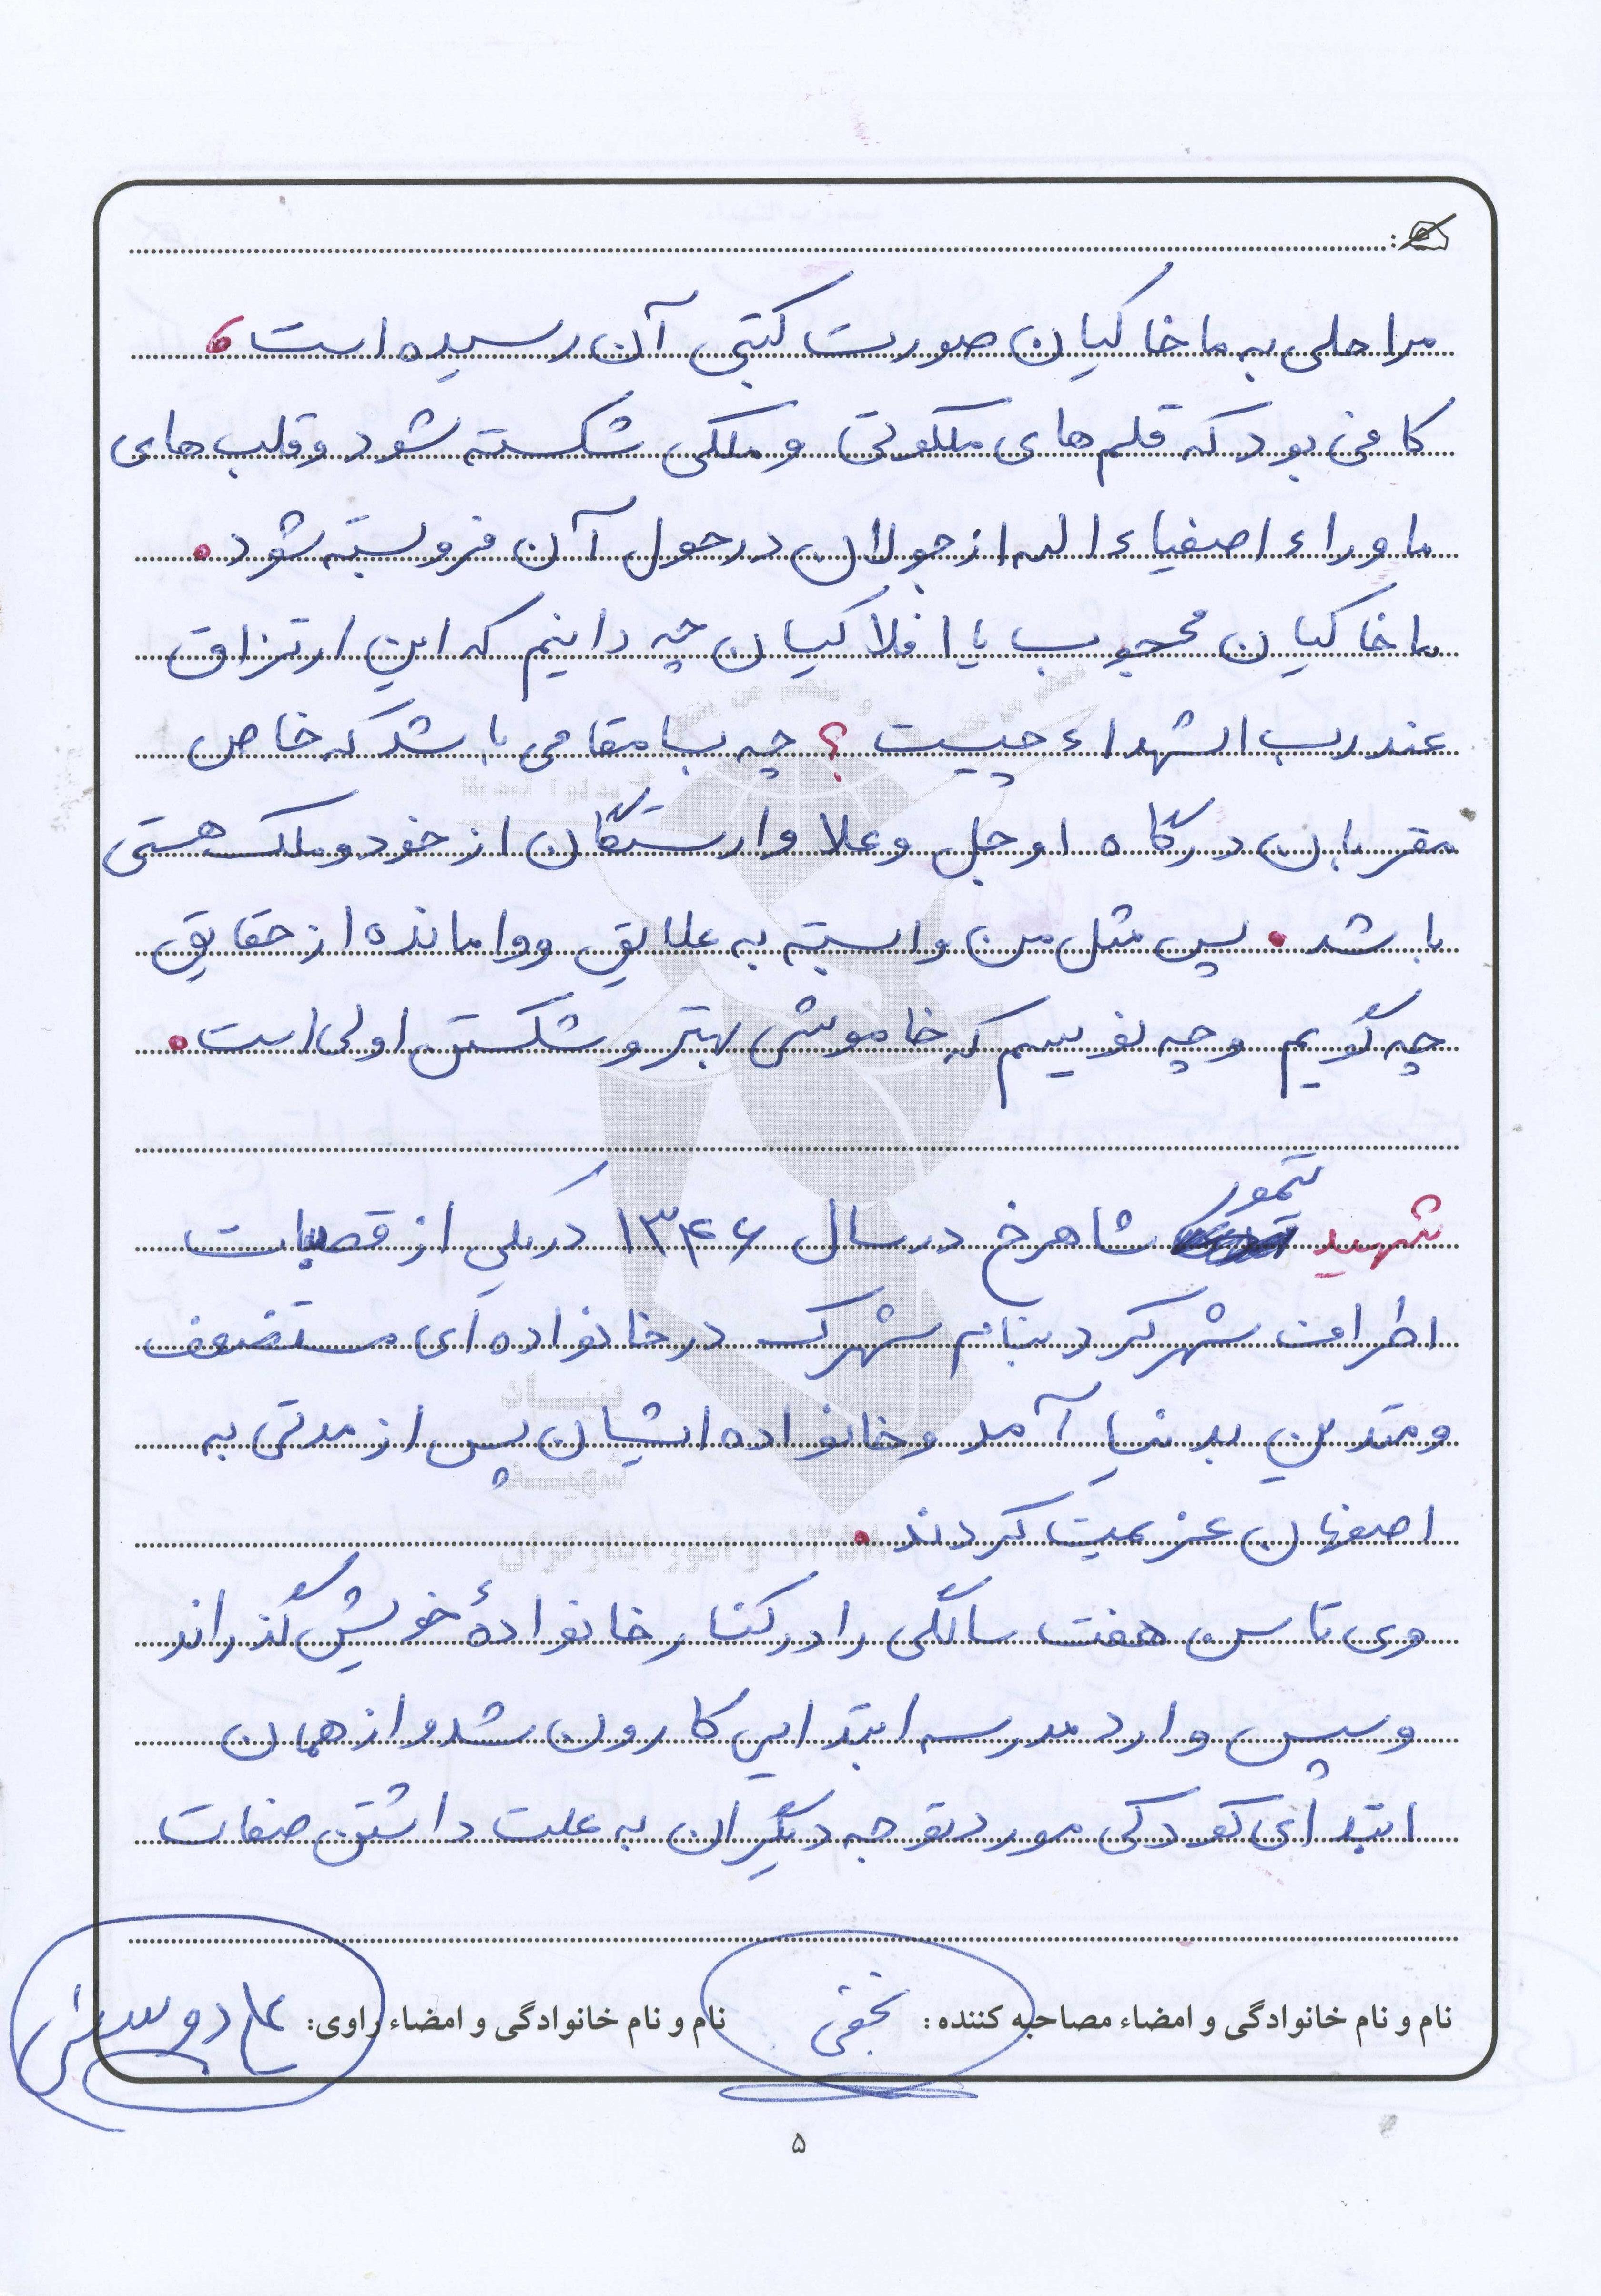 مراحلی به ما خاکیان صورت کتبی آن رسیده است،
کافی بود که قلم های ملکوتی و ملکی شکسته شود و قلب های
ماوراء اصفیاء اله از جولان در حول آن فروبسته شود.
ما خاکیان محجوب یا افلاکیان چه دانیم که این ارتزاق
عند رب الشهداء چیست؟ چه بسا مقامی باشد که خاص
مقربان درگاه او جل و علا و وارستگان از خود و ملک هستی
باشد. پس مثل من وابسته به علایق و وامانده از حقایق
چه گویم و چه نویسم که خاموشی بهتر و شکستن اولی است.
شهید تیمور شاهرخ در سال ۱۳۴۶ در یکی از قصبات
اطراف شهرکرد بنام شهرک در خانواده ای مستضعف
و متدین بدنیا آمد و خانواده ایشان پس از مدتی به
اصفهان عزیمت کردند.
وی تا سن هفت سالگی را در کنار خانوادهٔ خویش گذراند
و سپس وارد مدرسه ابتدایی کارون شد و از همان
ابتدای کودکی مورد توجه دیگران به علت داشتن صفات
نام و نام خانوادگی و امضاء مصاحبه کننده: نجفی نام و نام خانوادگی و امضاء راوی:
۵
بنیاد
شهید
و امور ایثارگران